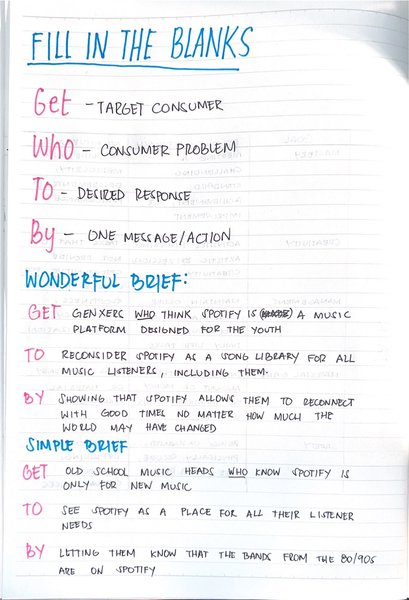 FILL IN THE BLANKS
Get - TARGET CONSUMER
Who - CONSUMER PROBLEM
To - DESIRED RESPONSE
By - ONE MESSAGE/ACTION
WONDERFUL BRIEF:
GET GENXERS WHO THINK SPOTIFY IS A MUSIC
PLATFORM DESIGNED FOR THE YOUTH
TO RECONSIDER SPOTIFY AS A SONG LIBRARY FOR ALL
MUSIC LISTENERS, INCLUDING THEM.
BY SHOWING THAT SPOTIFY ALLOWS THEM TO RECONNECT
WITH GOOD TIMES NO MATTER HOW MUCH THE
WORLD MAY HAVE CHANGED
SIMPLE BRIEF
GET OLD SCHOOL MUSIC HEADS WHO KNOW SPOTIFY IS
ONLY FOR NEW MUSIC
TO SEE SPOTIFY AS A PLACE FOR ALL THEIR LISTENER
NEEDS
BY LETTING THEM KNOW THAT THE BANDS FROM THE 80/90S
ARE ON SPOTIFY